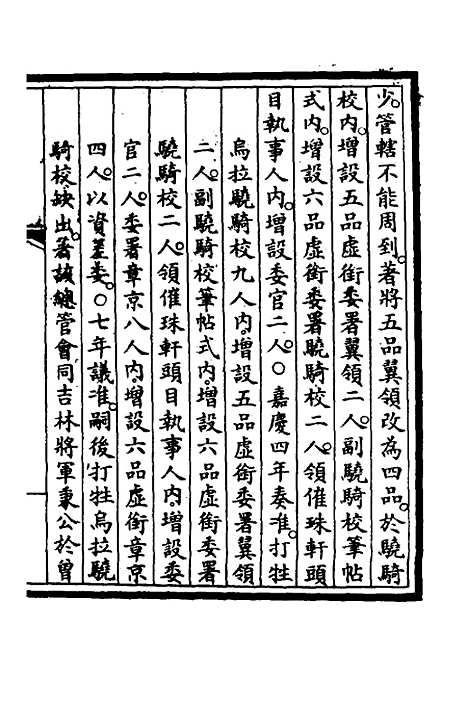 少。管轄不能周到。著將五品翼領改為四品。於驍騎
校內。增設五品虛銜委署翼領二人。副驍騎校筆帖
式內。增設六品虛銜委署驍騎校二人。領催珠軒頭
目執事人內。增設委官二人。○嘉慶四年奏准。打牲
烏拉驍騎校九人內。增設五品虛銜委署翼領
二人。副驍騎校筆帖式內。增設六品虛銜委署
驍騎校二人。領催珠軒頭目執事人內。增設委
官二人。委署章京八人內。增設六品虛銜章京
四人。以資差委。○七年議准。嗣後打牲烏拉驍
騎校缺出。著該總管會同吉林將軍秉公於曾